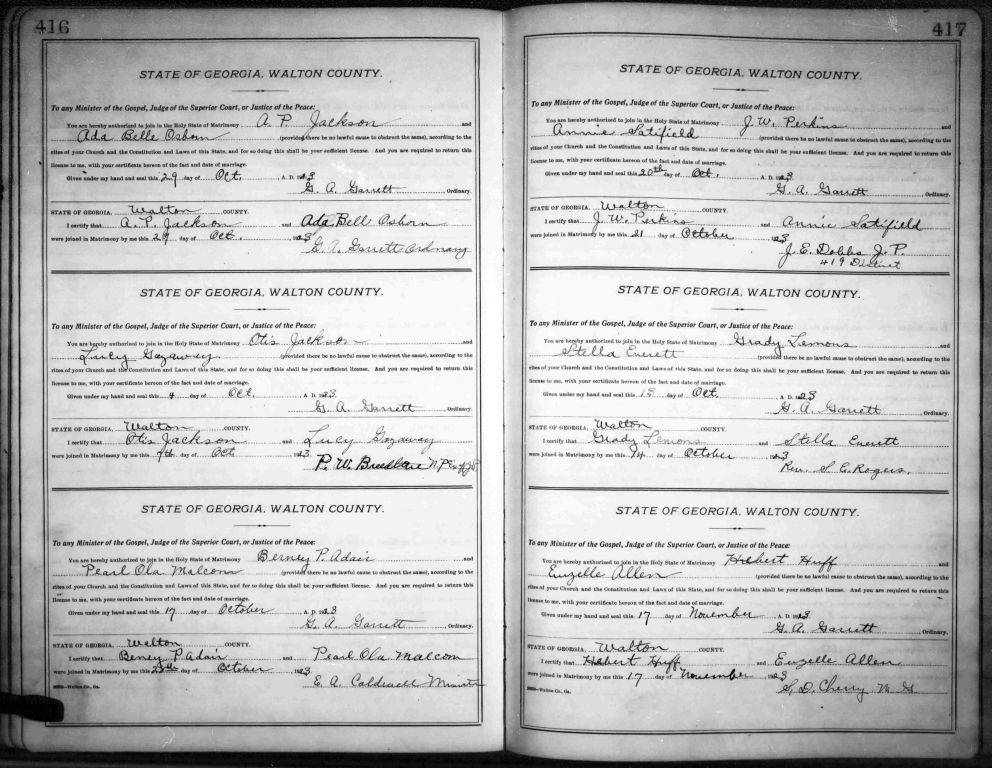 416
STATE OF GEORGIA, WALTON COUNTY.
To any Minister of the Gospel, Judge of the Superior Court, or Justice of the Peace:
You are hereby authorized to join in the Holy State of Matrimony A. P. Jackson and
Ada Belle Osborn (provided there be no lawful cause to obstruct the same), according to the
rites of your Church and the Constitution and Laws of this State, and for so doing this shall be your sufficient license. And you are required to return this
license to me, with your certificate hereon of the fact and date of marriage.
Given under my hand and seal this 29 day of Oct. A. D. 1923
G. A. Garrett Ordinary.
STATE OF GEORGIA, Walton COUNTY.
I certify that A. P. Jackson and Ada Bell Osborn
were joined in Matrimony by me this 29 day of Oct. 1923
G. A. Garrett Ordinary
STATE OF GEORGIA, WALTON COUNTY.
To any Minister of the Gospel, Judge of the Superior Court, or Justice of the Peace:
You are hereby authorized to join in the Holy State of Matrimony Otis Jackson and
Lucy Gazaway (provided there be no lawful cause to obstruct the same), according to the
rites of your Church and the Constitution and Laws of this State, and for so doing this shall be your sufficient license. And you are required to return this
license to me, with your certificate hereon of the fact and date of marriage.
Given under my hand and seal this 4 day of Oct. A. D. 1923.
G. A. Garrett Ordinary.
STATE OF GEORGIA, Walton COUNTY.
I certify that Otis Jackson and Lucy Gazaway
were joined in Matrimony by me this 7th day of Oct 1923
P. W. N.P.
STATE OF GEORGIA, WALTON COUNTY.
To any Minister of the Gospel, Judge of the Superior Court, or Justice of the Peace:
You are hereby authorized to join in the Holy State of Matrimony Berney P. Adair and
Pearl Ola Malcom (provided there be no lawful cause to obstruct the same), according to the
rites of your Church and the Constitution and Laws of this State, and for so doing this shall be your sufficient license. And you are required to return this
license to me, with your certificate hereon of the fact and date of marriage.
Given under my hand and seal this 17 day of October A. D. 1923
G. A. Garrett, Ordinary.
STATE OF GEORGIA, Walton COUNTY.
I certify that Berney P Adair and Pearl Ola Malcom
were joined in Matrimony by me this day of October 1923
E. A. Caldwell Minister
Walton Co., Ga.
417
STATE OF GEORGIA, WALTON COUNTY.
To any Minister of the Gospel, Judge of the Superior Court, or Justice of the Peace:
You are hereby authorized to join in the Holy State of Matrimony J. W. Perkins and
Annie Satifield (provided there be no lawful cause to obstruct the same), according to the
rites of your Church and the Constitution and Laws of this State, and for so doing this shall be your sufficient license. And you are required to return this
license to me, with your certificate hereon of the fact and date of marriage.
Given under my hand and seal this 20th day of Oct. A. D. 1923
G. A. Garrett Ordinary.
STATE OF GEORGIA, Walton COUNTY.
I certify that J. W. Perkins and Annie Satifield
were joined in Matrimony by me this 21 day of October 1923
J. E. Dobbs J. P.
419 District
STATE OF GEORGIA, WALTON COUNTY.
To any Minister of the Gospel, Judge of the Superior Court, or Justice of the Peace:
You are hereby authorized to join in the Holy State of Matrimony Grady Lemons and
Stella Everett (provided there be no lawful cause to obstruct the same), according to the
rites of your Church and the Constitution and Laws of this State, and for so doing this shall be your sufficient license. And you are required to return this
license to me, with your certificate hereon of the fact and date of marriage.
Given under my hand and seal this day of Oct. A. D. 1923
G. A. Garrett Ordinary.
STATE OF GEORGIA, Walton COUNTY.
I certify that Grady Lemons and Stella Everett
were joined in Matrimony by me this 14 day of October 1923
Rev. S. E. Rogers.
STATE OF GEORGIA, WALTON COUNTY.
To any Minister of the Gospel, Judge of the Superior Court, or Justice of the Peace:
You are hereby authorized to join in the Holy State of Matrimony Hebert Huff and
Euzelle Allen (provided there be no lawful cause to obstruct the same), according to the
rites of your Church and the Constitution and Laws of this State, and for so doing this shall be your sufficient license. And you are required to return this
license to me, with your certificate hereon of the fact and date of marriage.
Given under my hand and seal this 17 day of November A. D. 1923
G. A. Garrett Ordinary.
STATE OF GEORGIA, Walton COUNTY.
I certify that Hebert Huff and Euzelle Allen
were joined in Matrimony by me this 17 day of November 1923
S. D. Cherry M. G
Walton Co., Ga.